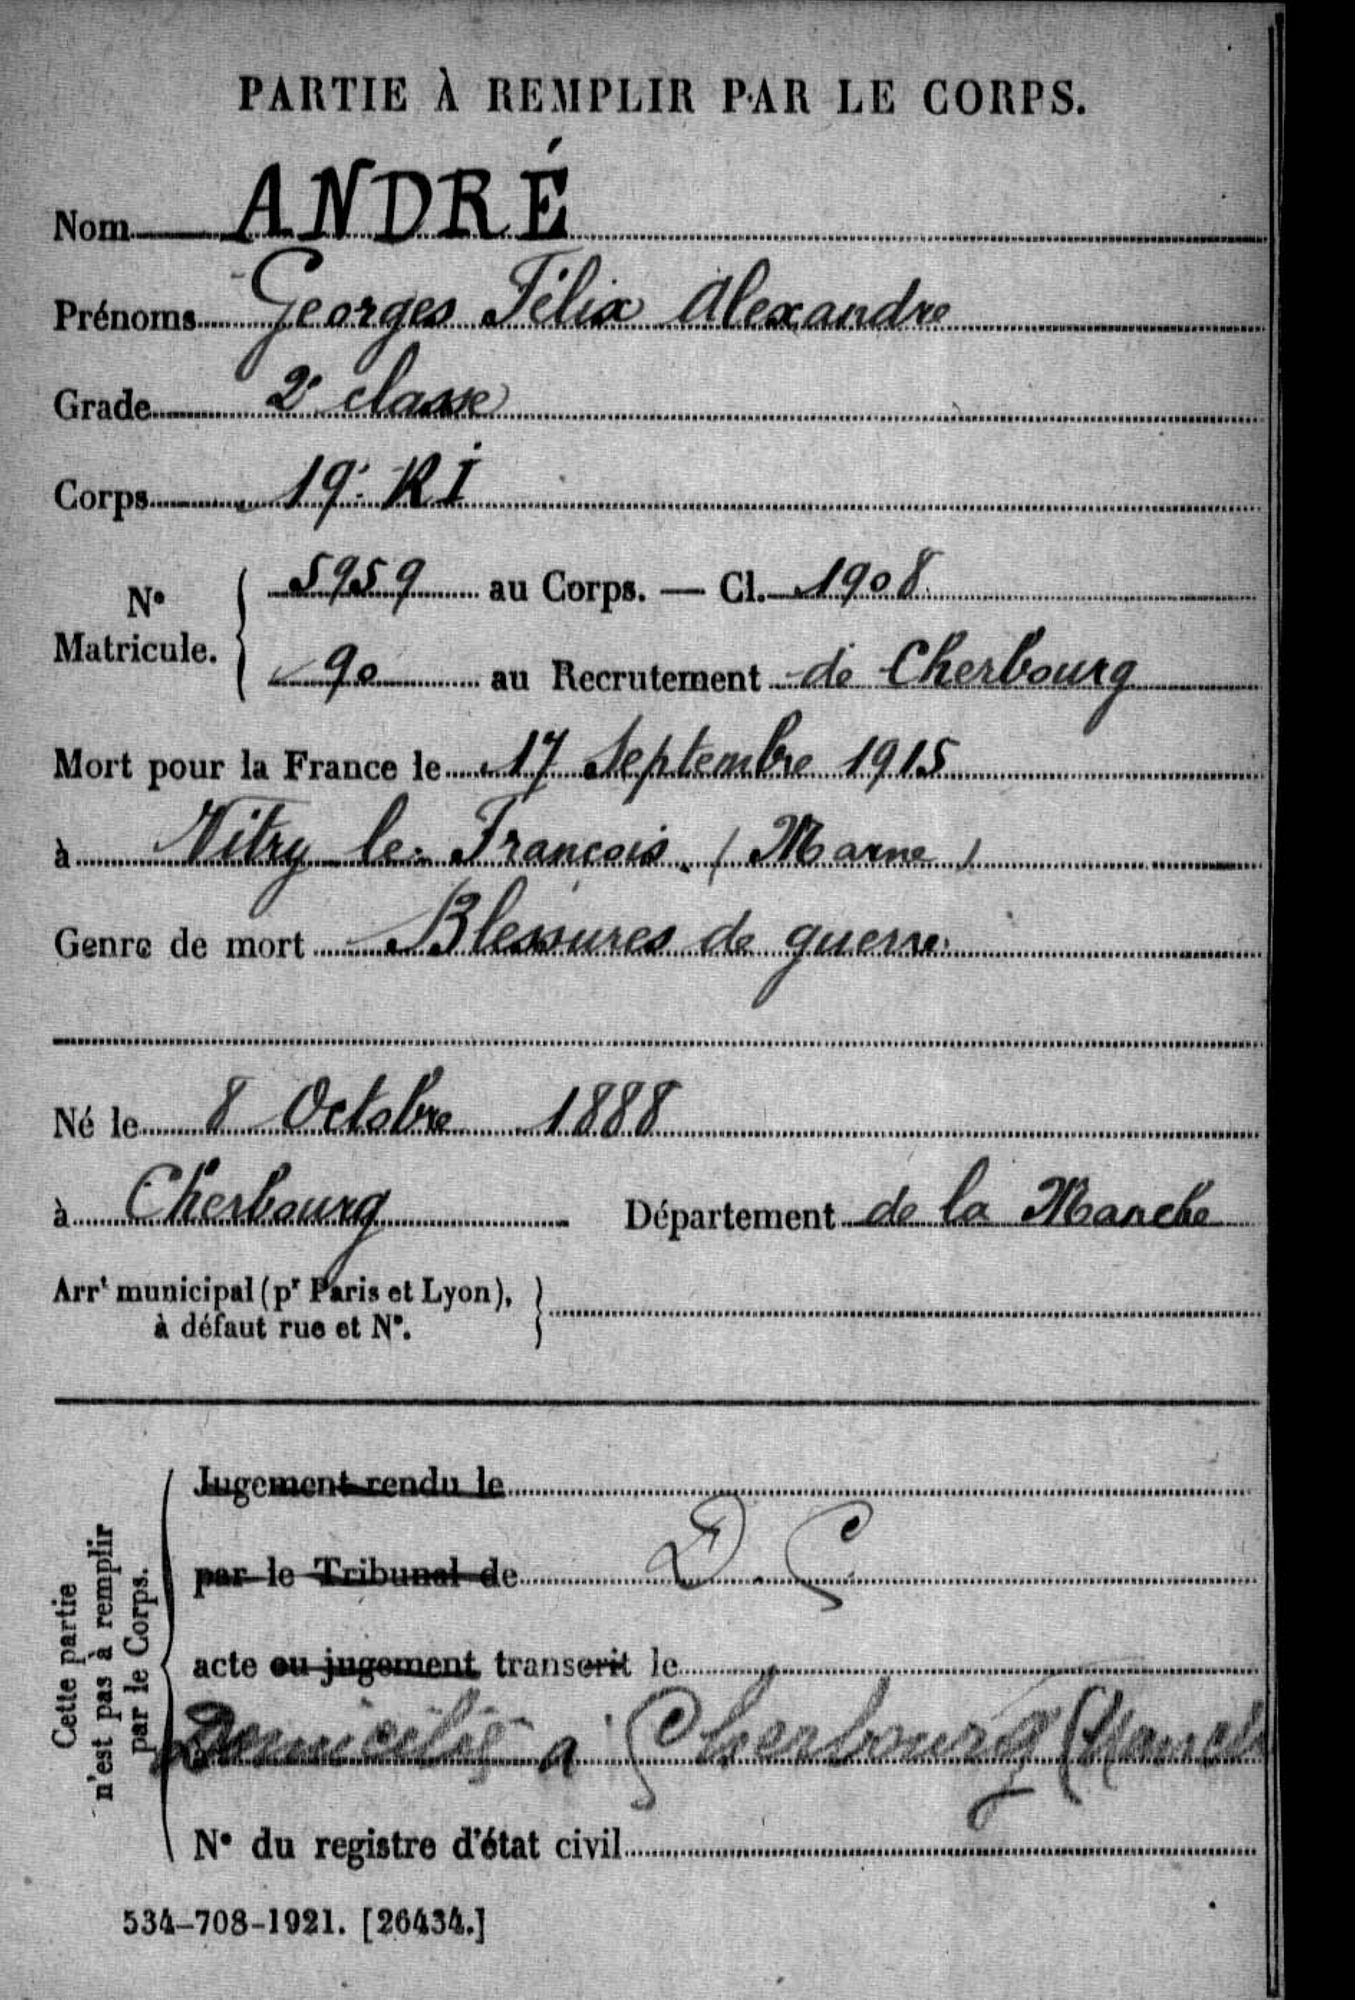 PARTIE À REMPLIR PAR LE CORPS.
Nom ANDRÉ
Prénoms Georges Félix Alexandre
Grade 2e classe
Corps 19e RI
N° Matricule. { 5959 au Corps. — Cl. 1908
90 au Recrutement de Cherbourg
Mort pour la France le 17 Septembre 1915
à Vitry le François (Marne)
Genre de mort Blessures de guerre
Né le 8 Octobre 1888
à Cherbourg Département de la Manche
Arrt municipal (pr Paris et Lyon),
à défaut rue et N°.
Cette partie n'est pas à remplir par le Corps.
Jugement rendu le
par le Tribunal de D. C
acte ou jugement transcrit le
Domicilié à Cherbourg (Manche
N° du registre d'état civil
534-708-1921. [26434.]